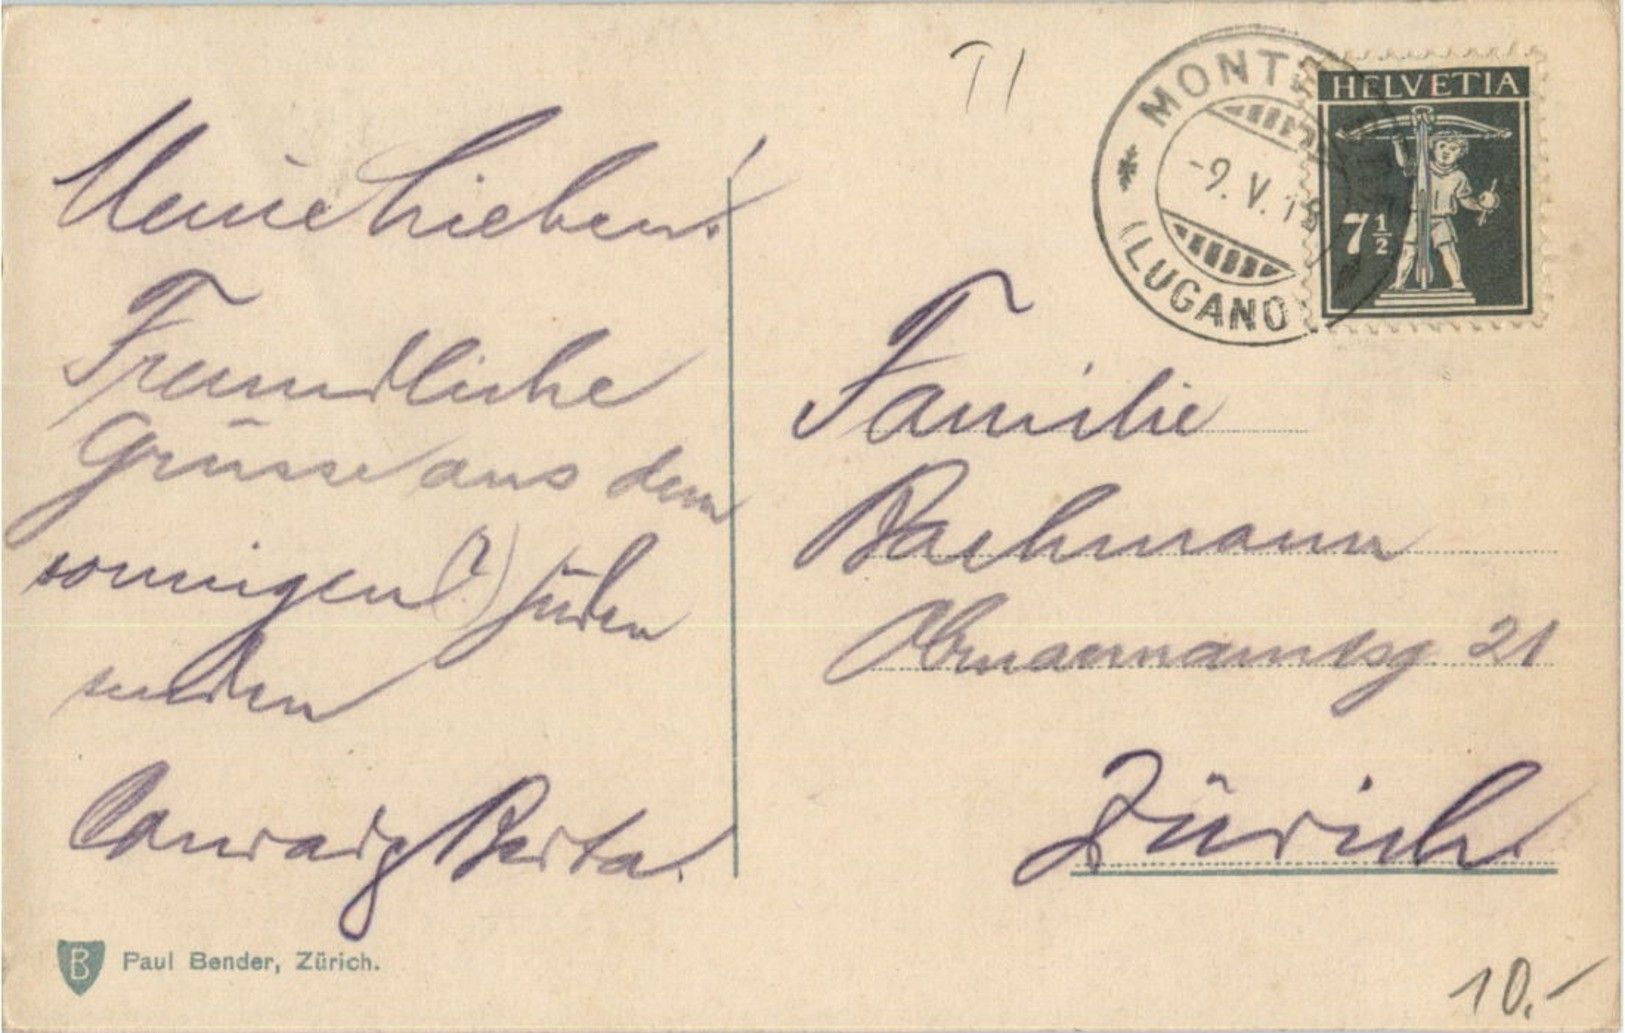 TI
MONT
-9. V. 1
(LUGANO)
HELVETIA
7½
Meine Lieben!
Freundliche
Grüsse aus dem
sonnigen (?) Süden
senden
Conrad & Berta.
Familie
Bachmann
Obmannamtsg 21
Zürich.
B Paul Bender, Zürich.
10.-